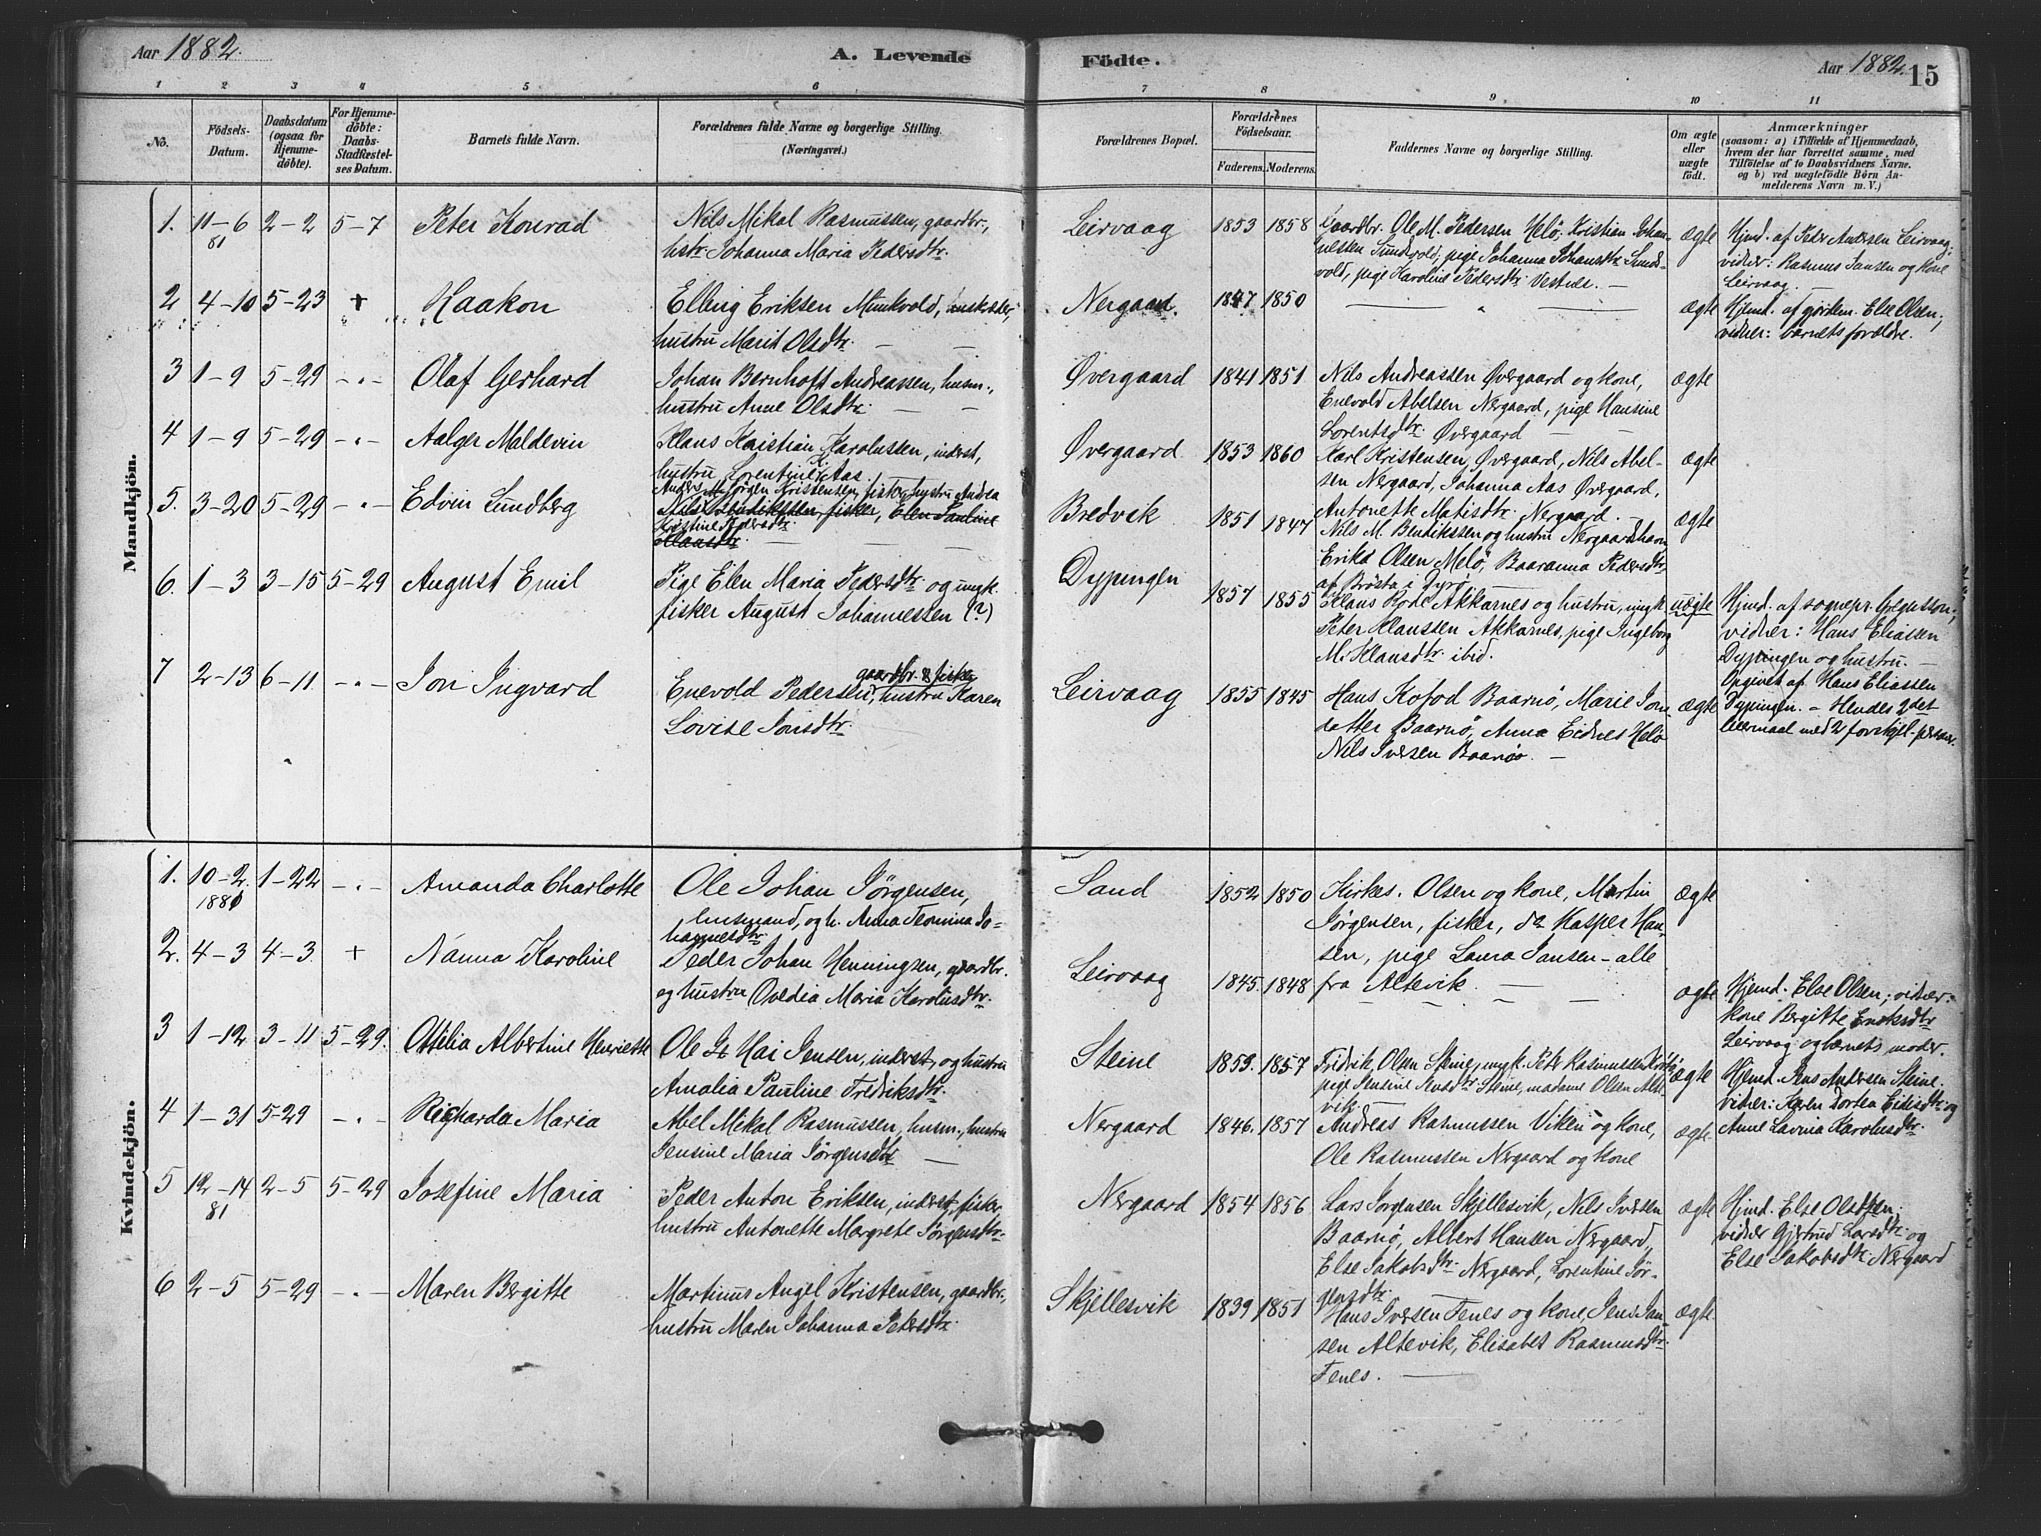 Aar 1882. A. Levende Födte. Aar 1882. 15
1 2 3 4 5 6 7 8 9 10 11
No. Födsels-Datum. Daabsdatum (ogsaa for Hjemmedöbte). For Hjemmedöbte: Daabs-Stadfæstelses Datum. Barnets fulde Navn. Forældrenes fulde Navne og borgerlige Stilling. (Næringsvei.) Forældrenes Bopæl. Forældrenes Födselsaar. Faderens. Moderens. Faddernes Navne og borgerlige Stilling. Om ægte eller uægte födt. Anmærkninger (saasom: a) i Tilfælde af Hjemmedaab, hvem der har forrettet samme, med Tilföielse af to Daabsvidners Navne, og b) ved uægtefödte Börn Anmelderens Navn m. V.)
Mandkjön.
1. 11-6 81 2-2 5-7 Peter Konrad
Nils Mikal Rasmussen, gaardbr.,
hstr. Johanna Maria Pedersdtr.
Leirvaag 1853 1858
Gaardbr. Ole M. Pedersen Helø, Kristian Johan-
nessen Sundsvold, pige Johanna Johansdtr. Sunds-
vold, pige Karoline Pedersdtr. Vestvik. —
ægte
Hjmd. af Peder Andersen Leirvaag;
vidner: Rasmus Jansen og kone
Leirvaag. —
2 4-10 5-23 + Haakon
Elling Eriksen Munkvold,
hustru Marit Olsdtr. — —
Nergaard. 1847 1850
— " —
ægte
Hjemd. af gjordem. Else Olsen;
vidner: barnets forældre.
3 1-9 5-29 -"- Olaf Gerhard
Johan Bernhoft Andreassen, husm.,
hustru Anne Olsdtr. — —
Øvergaard 1841 1851
Nils Andreassen Øvergaard og kone,
Enevold Abelsen Nergaard, pige Hansine
Lorentsdtr. Øvergaard —
ægte
4 1-9 5-29 -"- Aalger Meldevin
Klaus Kristian Karolussen, inderst,
hustru Lorentine Aas.
Øvergaard 1853 1860
Karl Kristensen Øvergaard, Nils Abel-
sen Nergaard, Johanna Aas Øvergaard,
Antonette Matisdtr. Nergaard. —
ægte
5. 3-20 5-29 -"- Edvin Lundberg
Anders M. Jørgen Kristensen, fisker, hustru Andrea
Nils Bendiksen, fisker, Elen Pauline
Kristine Pedersdtr.
Klausdtr.
Bredvik 1851 1847
Nils M. Bendikssen og hustru Nergaardshavn
Erika Olsen Melø, Baaranna Pedersdtr.
af Brøsta i Dyrø
ægte
6. 1-3 3-15 5-29 August Emil
Pige Elen Maria Pedersdtr. og ungk.
fisker August Johannessen (?)
Dypingen 1857 1855
Klaus Rode Akkarnes og hustru, ungk.
Peter Klaussen Akkarnes, pige Ingeborg
M. Klausdtr. ibid.
uægte
Hjmd. af sognepr. Gregusson;
vidner: Hans Eliassen
Dypingen og hustru. —
Opgivet af Hans Eliassen
Dypingen. — Hendes 2det
leiermaal med 2 forskjel. personer.
7 2-13 6-11 -"- Jon Ingvard
gaardbr. & fisker
Enevold Pedersen, hustru Karen
Lovise Jonsdtr.
Leirvaag 1855 1845
Hans Kofod Baarnø, Marie Jons-
datter Baarnø, Anna Eidnes Helø
Nils Iversen Baarnø. —
ægte
Kvindekjön.
1. 10-2. 1881 1-22 -"- Amanda Charlotte
Ole Johan Jørgensen,
husmand, og h. Anna Teonina Jo-
hannesdtr.
Sand 1852 1850
Kirkes. Olsen og kone, Martin
Jørgensen, fisker, do Kasper Han-
sen, pige Laura Jansen - alle
fra Altevik. —
ægte
2. 4-3 4-3. + Nanna Karoline
Peder Johan Henningsen, gaardbr.
og hustru Ovedia Maria Karolusdtr.
Leirvaag 1845. 1848
— — —
ægte
Hjemd. Else Olsen; vidner:
kone Bergitte Enoksdtr.
Leirvaag og barnets moder.
3 1-12 3-11 5-29. Ottilia Albertine Henriette
Ole Hai Jensen, inderst, og hustru
Amalia Pauline Fredriksdtr.
Steine 1853. 1857
Fridrik Olsen Steine, ungk. Petr Rasmussen
pige Jentine Steine, madame Olsen Alte-
vik —
ægte
Hjemd. Jens Andersen Steine.
vidner: Karen Dortea Eidisdtr. og
Anne Lavina Karolusdtr.
4 1-31 5-29 -"- Righarda Maria
Abel Mikal Rasmussen, husm., hustru
Jensine Maria Jørgensdtr. —
Nergaard 1846. 1857
Andreas Rasmussen Viken og kone,
Ole Rasmussen Nergaard og kone
ægte
5 12-14 81 2-5 5-29 Josefine Maria
Peder Anton Eriksen, inderst, fisker
hustru Antonette Margrete Jørgensdtr.
Nergaard 1854 1856
Lars Jørgensen Skjellesvik, Nils Iversen
Baarnø, Albert Hansen Nergaard,
Else Jakobsdtr. Nergaard, Lorentine Jør-
gensdtr.
ægte
Hjmd. Else Olsen;
vidner Gjertrud Larsdtr. og
Else Jakobsdtr. Nergaard
6 2-5 5-29 -"- Maren Bergitte
Martinus Angel Kristensen, gaardbr.,
hustru Maren Johanna Pedersdtr.
Skjellesvik 1839 1851
Hans Iversen Fenes og kone, Jens Jan-
sen Altevik, Elisabet Rasmusdtr.
Fenes. —
ægte.